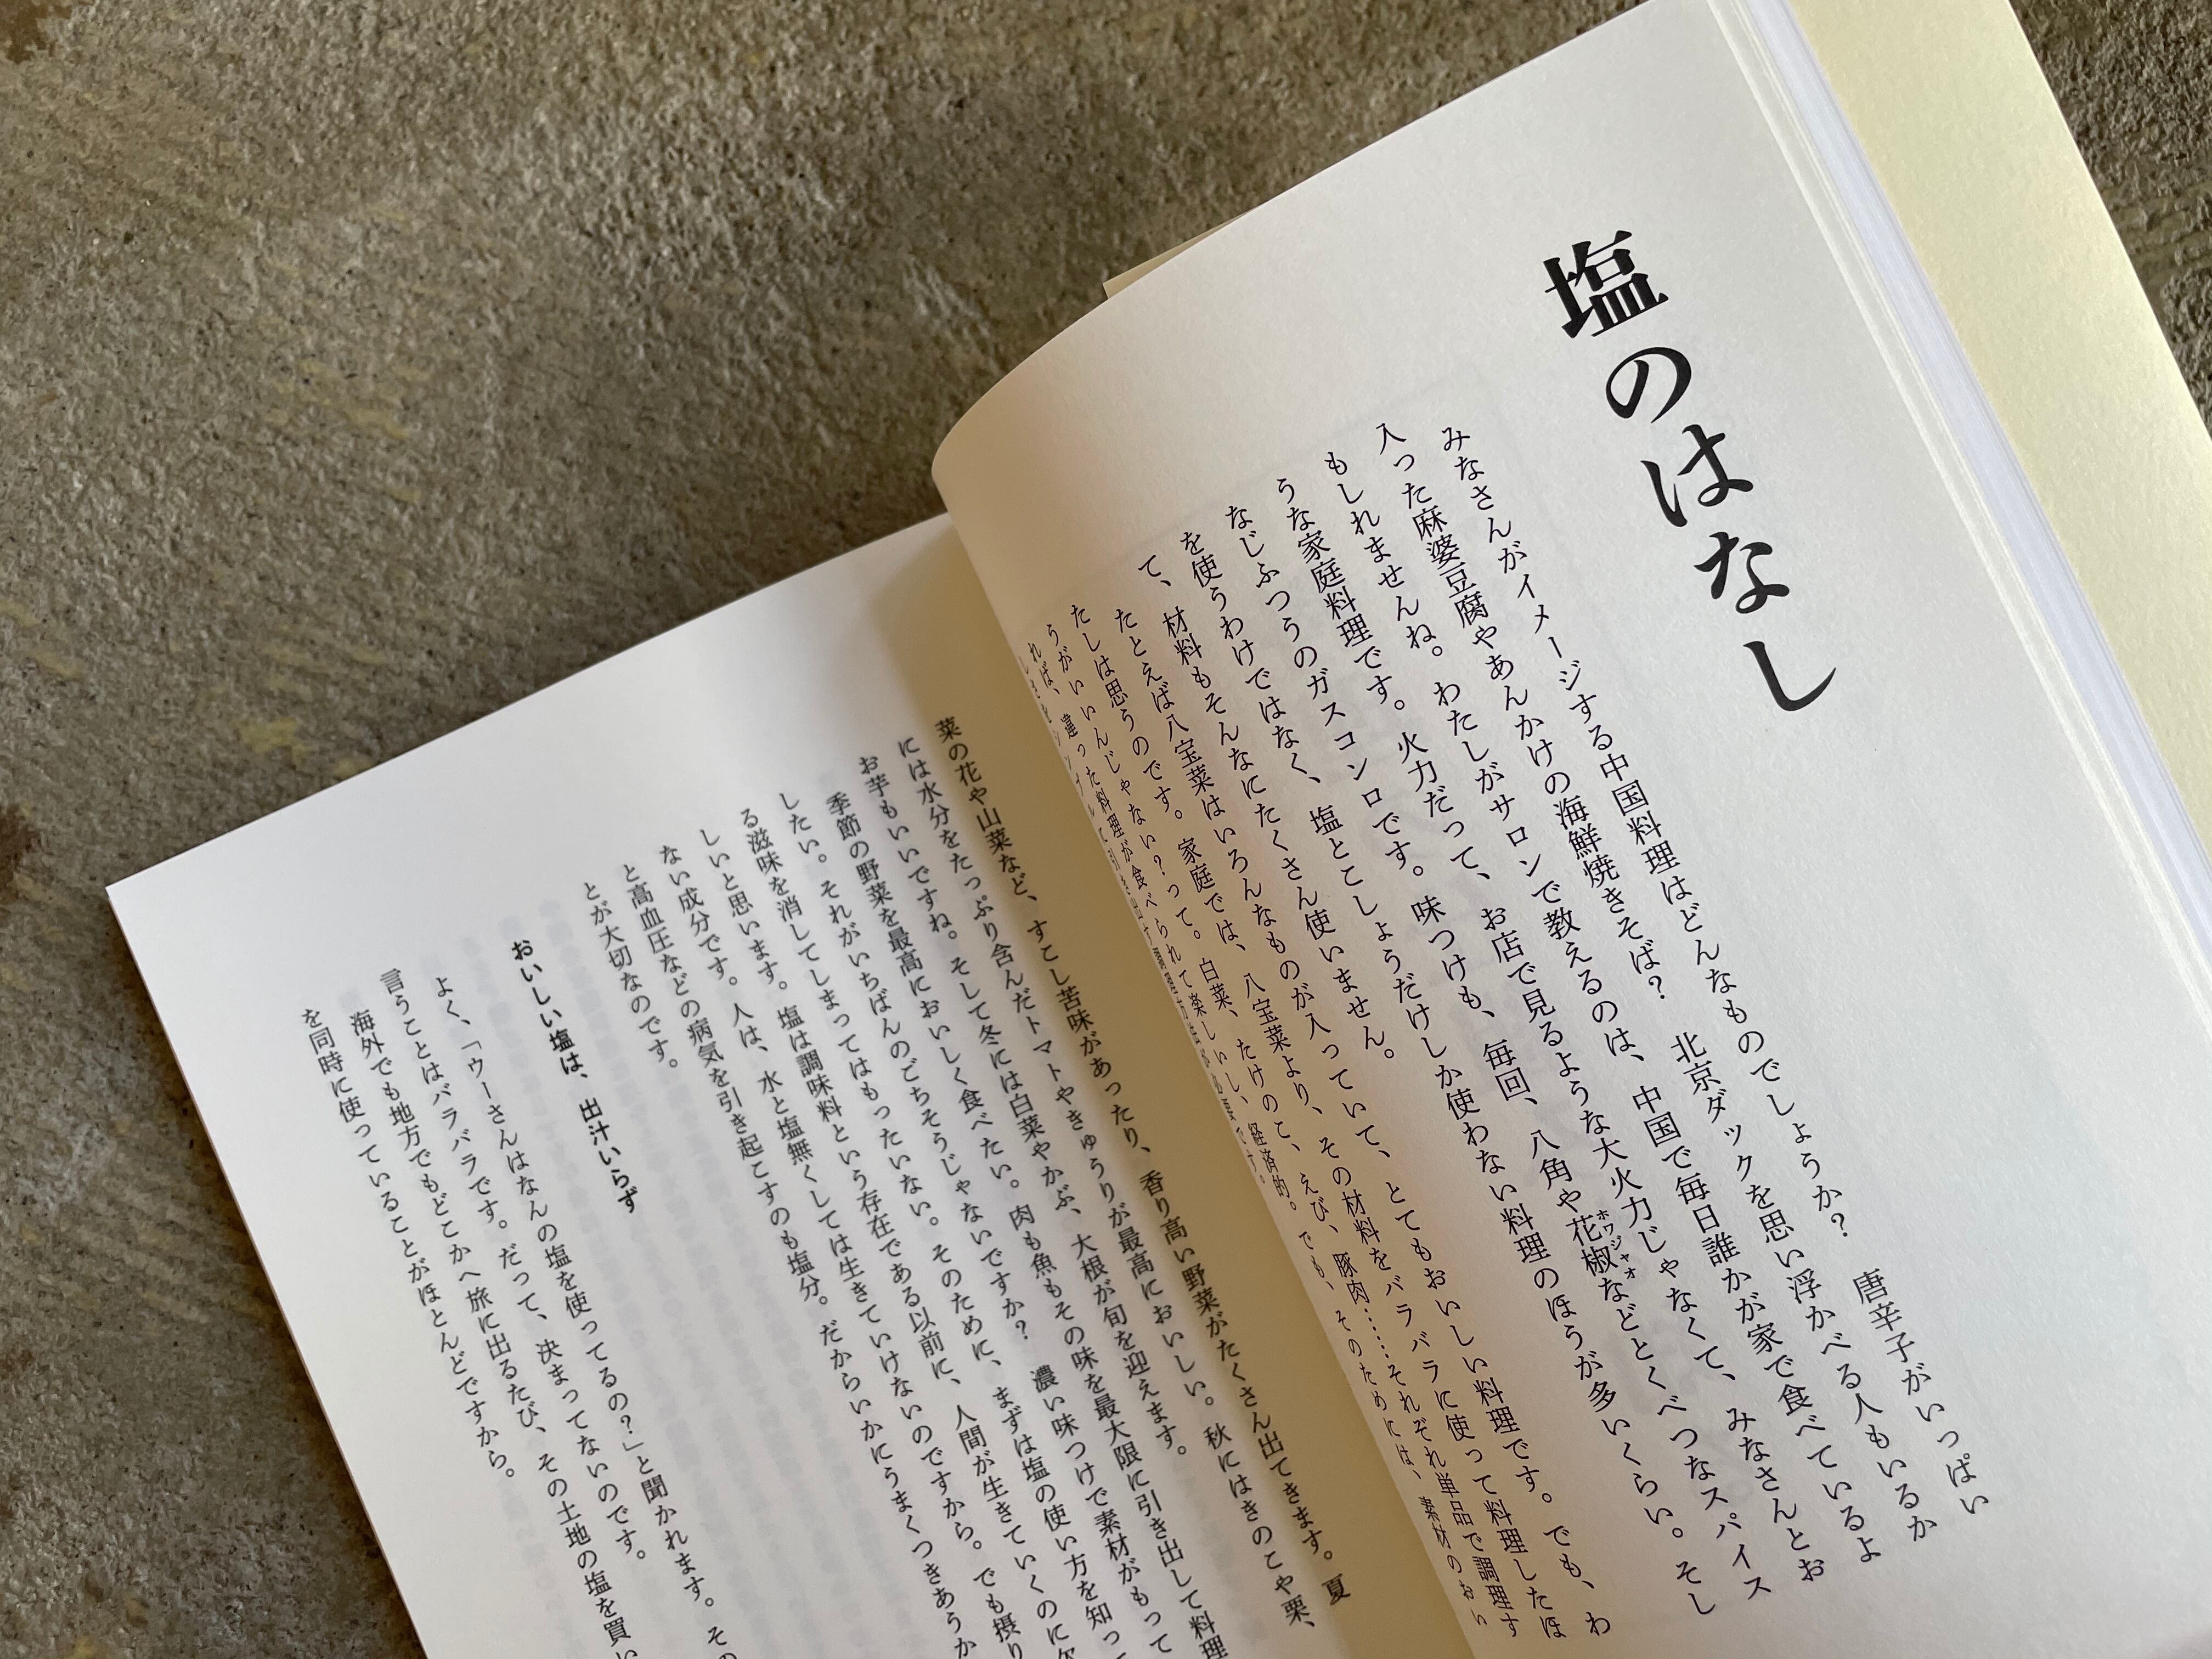 塩のはなし
みなさんがイメージする中国料理はどんなものでしょうか？　唐辛子がいっぱい
入った麻婆豆腐やあんかけの海鮮焼きそば？　北京ダックを思い浮かべる人もいるか
もしれませんね。わたしがサロンで教えるのは、中国で毎日誰かが家で食べているよ
うな家庭料理です。火力だって、お店で見るような大火力じゃなくて、みなさんとお
なじふつうのガスコンロです。味つけも、毎回、八角や花椒などとくべつなスパイス
ホワジャオ
を使うわけではなく、塩とこしょうだけしか使わない料理のほうが多いくらい。そし
て、材料もそんなにたくさん使いません。
たとえば八宝菜はいろんなものが入っていて、とてもおいしい料理です。でも、わ
たしは思うのです。家庭では、八宝菜より、その材料をバラバラに使って料理したほ
うがいいんじゃない？って。白菜、たけのこ、えび、豚肉……それぞれ単品で調理す
れば、違った料理が食べられて楽しいし、経済的。でも、そのためには、素材のおい
しさをシンプルに引き出す調理方法が必要です。
菜の花や山菜など、すこし苦味があったり、香り高い野菜がたくさん出てきます。夏
には水分をたっぷり含んだトマトやきゅうりが最高においしい。秋にはきのこや栗、
お芋もいいですね。そして冬には白菜やかぶ、大根が旬を迎えます。
季節の野菜を最高においしく食べたい。肉も魚もその味を最大限に引き出して料理
したい。それがいちばんのごちそうじゃないですか？　濃い味つけで素材がもって
る滋味を消してしまってはもったいない。そのために、まずは塩の使い方を知っ
しいと思います。塩は調味料という存在である以前に、人間が生きていくのに欠
ない成分です。人は、水と塩無くしては生きていけないのですから。でも摂り
と高血圧などの病気を引き起こすのも塩分。だからいかにうまくつきあうか
とが大切なのです。
おいしい塩は、出汁いらず
よく、「ウーさんはなんの塩を使ってるの？」と聞かれます。その
言うことはバラバラです。だって、決まってないのです。
海外でも地方でもどこかへ旅に出るたび、その土地の塩を買い
を同時に使っていることがほとんどですから。